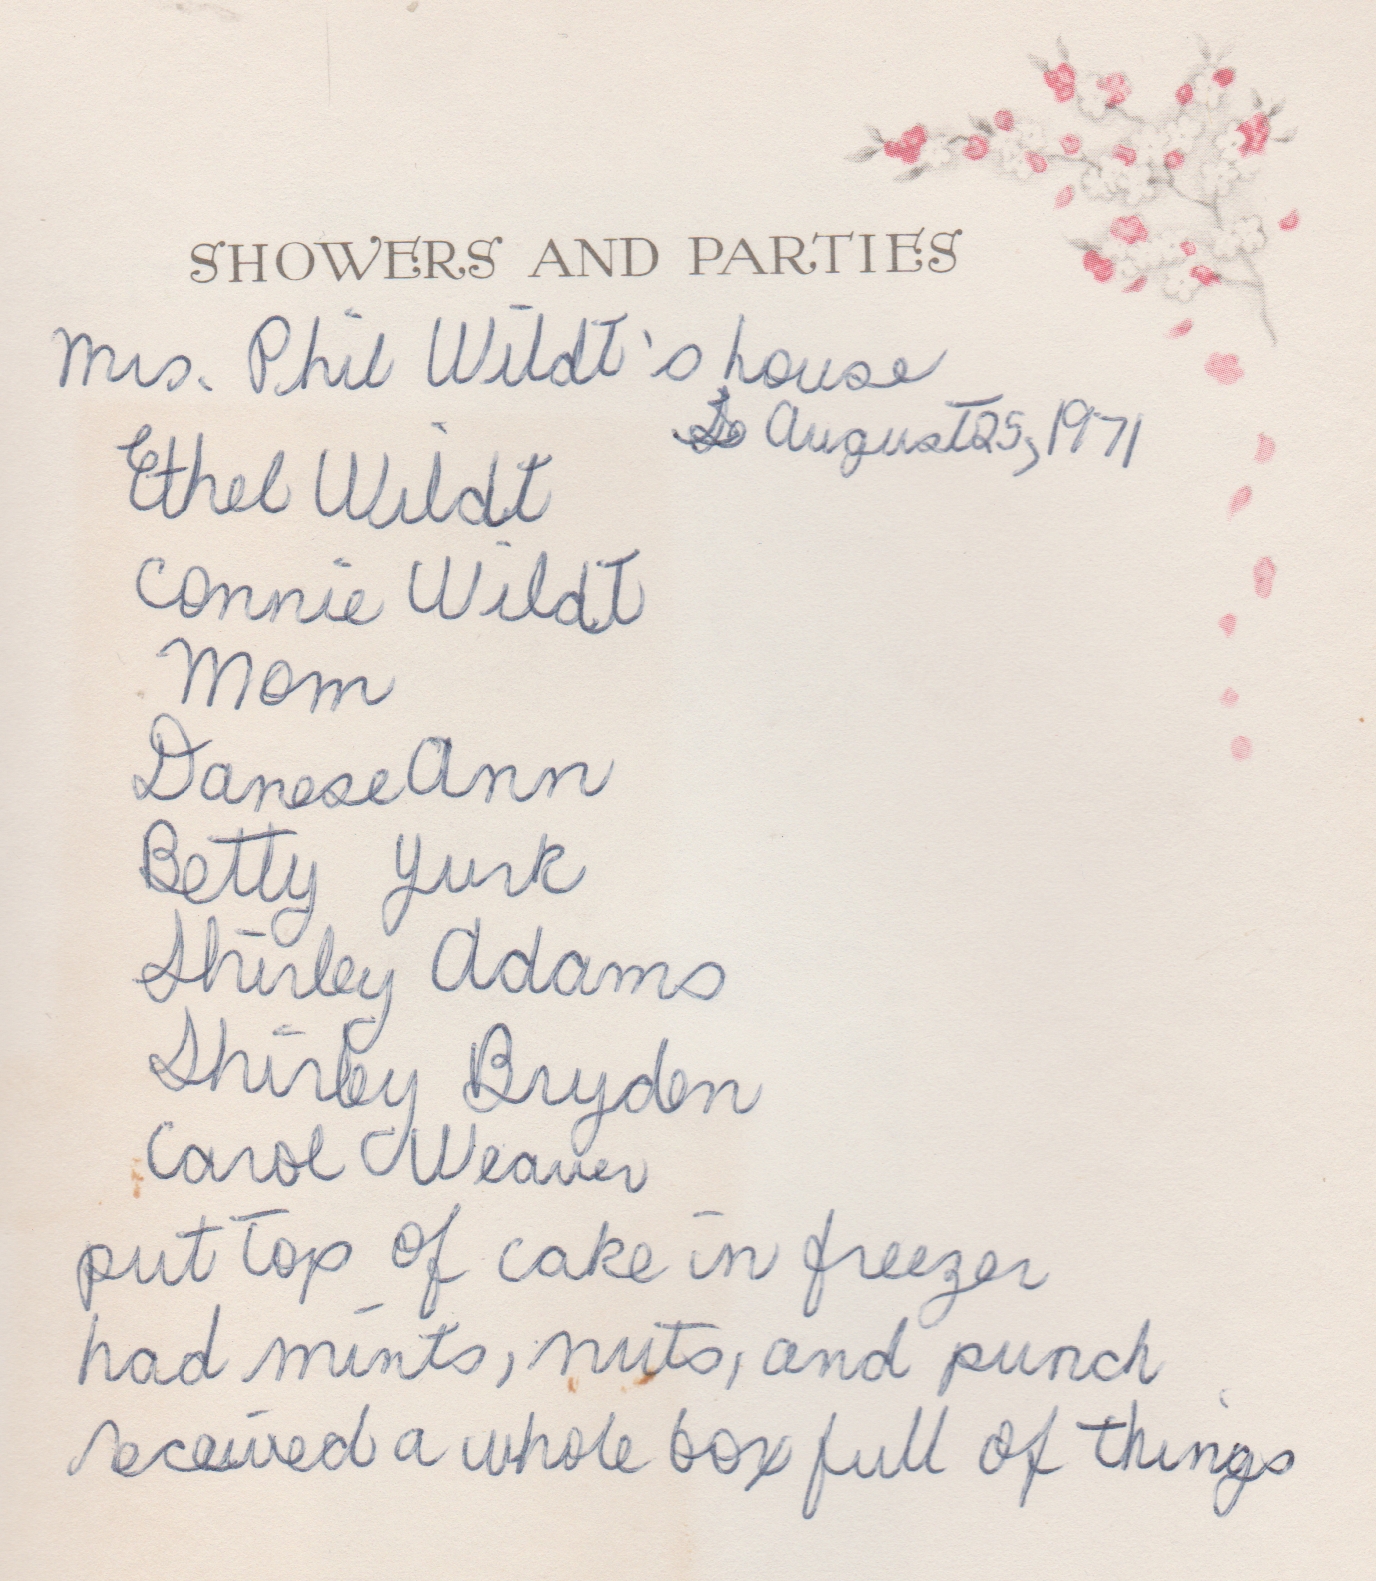 SHOWERS AND PARTIES
Mrs. Phil Wildt's house
August 25, 1971
Ethel Wildt
Connie Wildt
Mom
Danese Ann
Betty Yurk
Shirley Adams
Shirley Bryden
Carol Weaver
put top of cake in freezer
had mints, nuts, and punch
received a whole box full of things